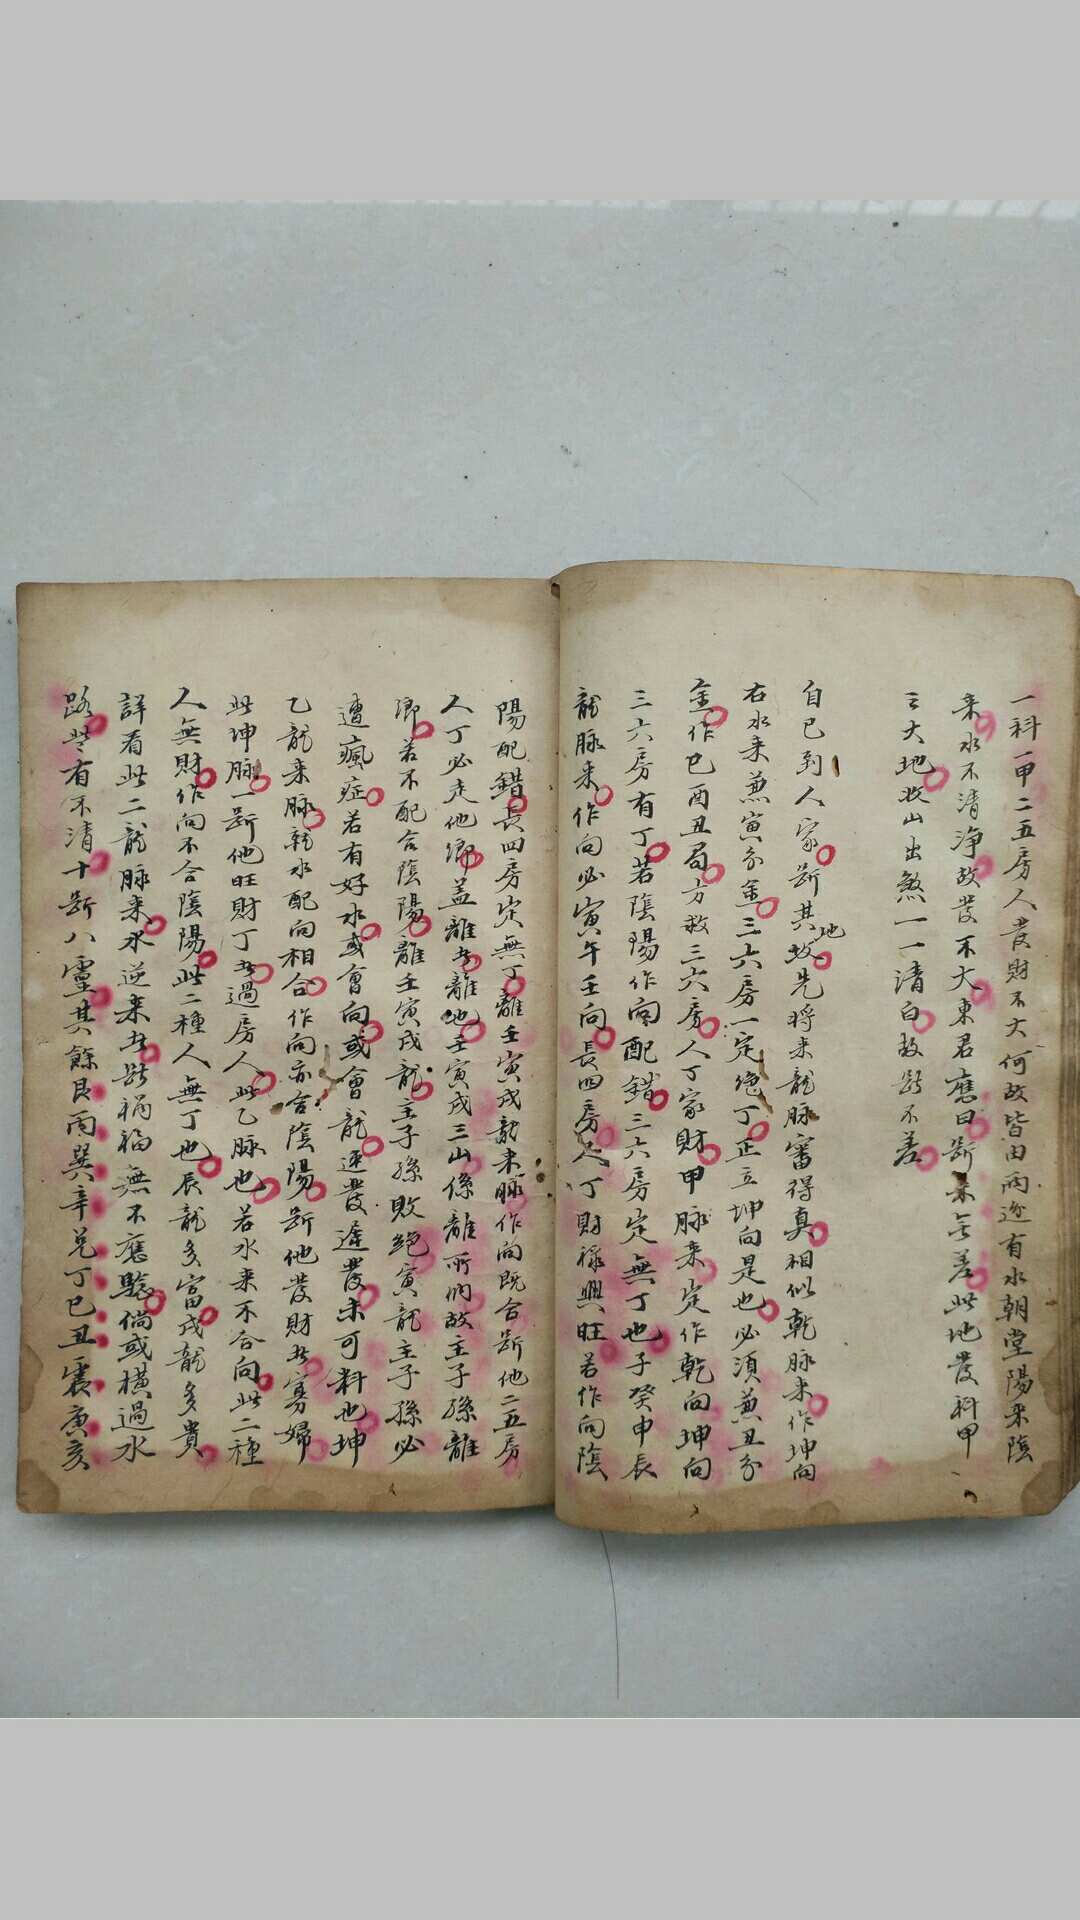 一科一甲二五房人發財不大何故皆由兩邊有水朝堂陽来陰
来水不清淨故發不大東君應曰斷来無差此地發科甲
三大地收山出煞一一清白故斷不差
自己到人家斷其地坟先将来龍脉審得真相似乾脉来作坤向
右水来兼寅分金三六房一定絶丁正立坤向是也必須兼丑分
金作巳酉丑局方救三六房人丁家財甲脉来定作乾向坤向
三六房有丁若陰陽作向配錯三六房定無丁也子癸申辰
龍脉来作向必寅午壬向長四房人丁財禄興旺若作向陰
陽配錯長四房定無丁離壬寅戌龍来脉作向既合斷他二五房
人丁必走他鄉盖離者離也壬寅戌三山係離所納故主子孫離
鄉若不配合陰陽離壬寅戌龍主子孫敗絶寅龍主子孫必
遭瘋症若有好水或會向或會龍速發遲發未可料也坤
乙龍来脉乾水配向相合作向亦合陰陽斷他發財者寡婦
此坤脉一斷他旺財丁者過房人此乙脉也若水来不合向此二種
人無財作向不合陰陽此二種人無丁也辰龍多富戌龍多貴
詳看此二龍脉来水逆来者斷禍福無不應騐倘或横過水
路些有不清十斷八靈其餘艮丙巽辛兌丁巳丑震庚亥